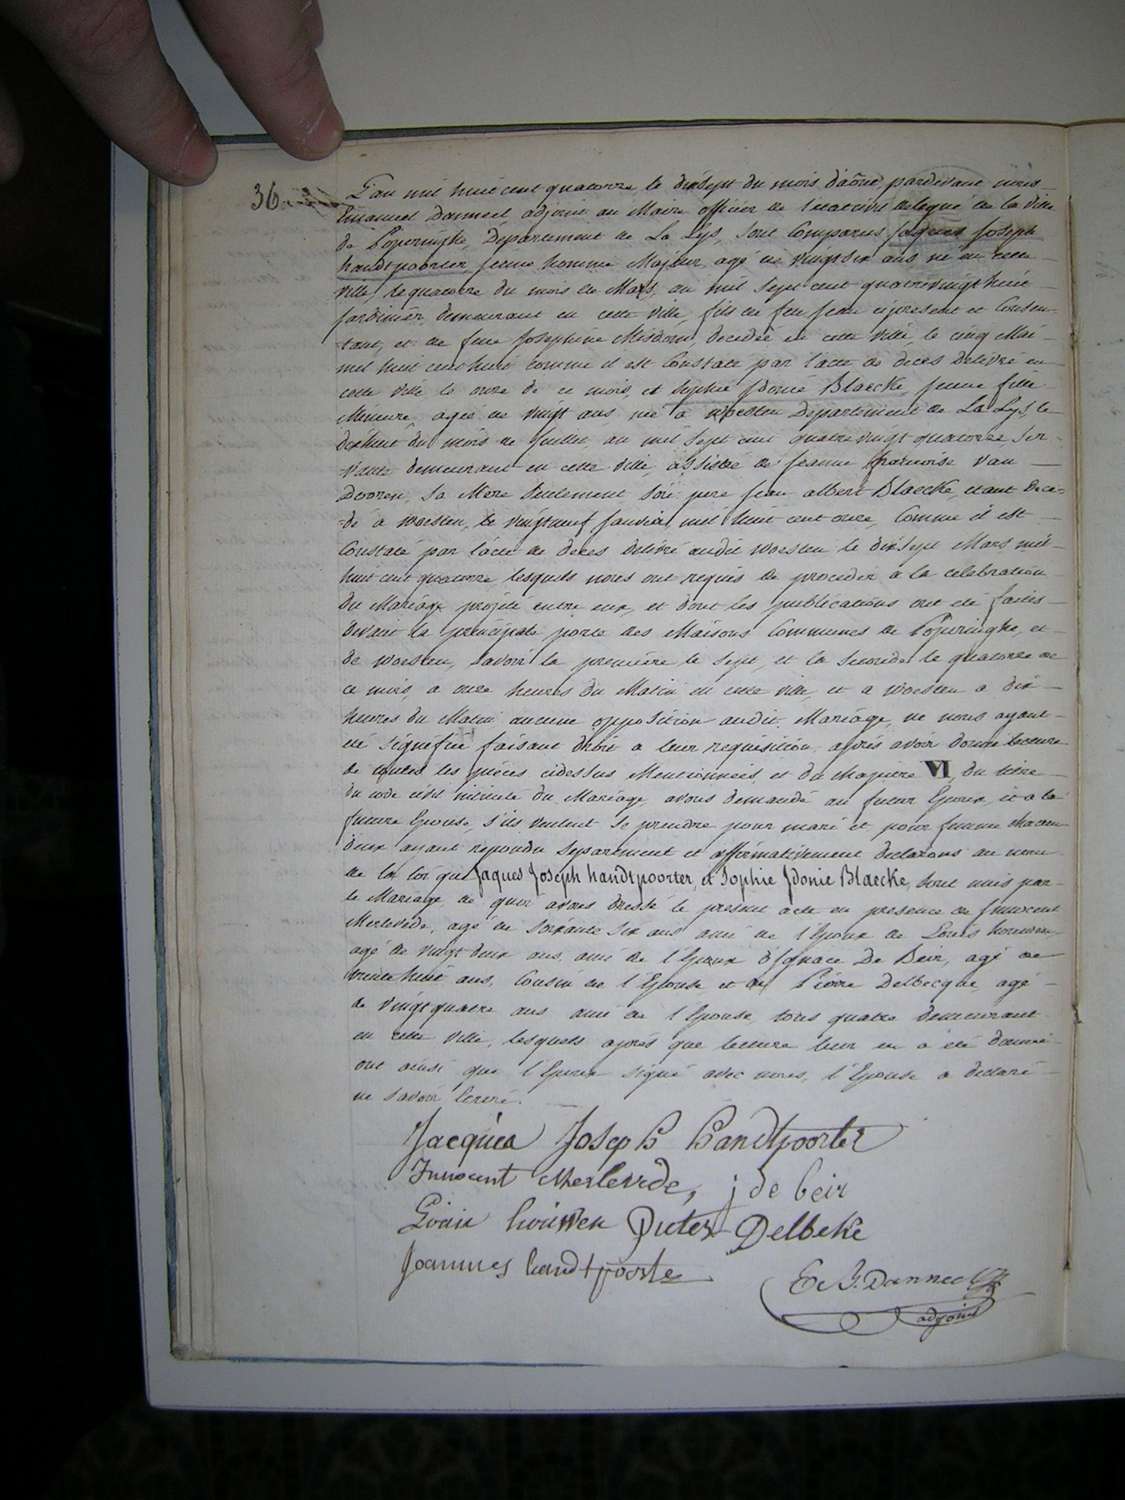 36
L'an mil huit cent quatorze le dixsept du mois d'aôut, pardevant nous
Emanuel Danneel, adjoint au Maire officier de l'etat civil delegué de la ville
de Poperinghe, Departement de La Lys, sont Comparus Jaques Joseph
handtpoorter, jeune homme Majeur, agé de vingt six ans né en cette
ville, le quatorze du mois de Mars, an mil sept cent quatre vingt huit
Jardinier, demeurant en cette ville, fils de feu Jean ci present et Consen-
tant, et de feue Josephine Misdom, decedée en cette ville, le cinq Mai
mil huit cent huit comme il est Constaté par l'acte de deces delivré en
cette ville le onze de ce mois, et Sophie Idonie Blaecke, jeune fille
Mineure, agée de vingt ans, née à woesten Departement de La Lys, le
dixhuit du mois de Juillet, an mil sept cent quatre vingt quatorze, Ser-
vante demeurant en cette ville, assistée de Jeanne francoise van
Dooren, sa Mere seulement son pere Jean albert Blaecke, etant dece-
dé à woesten, le vingt neuf Janvier mil huit cent onze, Comme il est
Constaté par l'acte de deces delivré audit woesten le dixsept Mars mil
huit cent quatorze lesquels nous ont requis de proceder à la celebration
du Mariage projeté entre eux, et dont les publications ont été faites
devant la principale porte des Maisons Communes de Poperinghe, et
de woesten, savoir la premiere le sept, et la seconde le quatorze de
ce mois, à onze heures du Matin en cette ville, et à woesten à dix
heures du Matin aucune opposition audit Mariage, ne nous ayant
été signifiée faisant droit à leur requisition, après avoir donné lecture
de toutes les pièces cidessus Mentionnées et du chapitre VI, du titre
du code civil intitulé du Mariage avons demandé au futur Epoux, et à la
future Epouse, s'ils veulent se prendre pour mari et pour femme chacun
deux ayant repondu separement et affirmativement declarons au nom
de la loi que Jaques Joseph handtpoorter, et Sophie Idonie Blaecke, sont unis par
le Mariage de quoi avons dressé le present acte en presence de Innocent
Merlevede, agé de soixante six ans ami de l'Epoux de Louis houwen
agé de vingt deux ans, ami de l'Epoux d'Ignace De Beir, agé de
trente huit ans, Cousin de l'Epouse et de Pierre Delbecque, agé
de vingt quatre ans ami de l'Epouse, tous quatre demeurant
en cette ville, lesquels après que lecture leur en a été donnée
ont ainsi que l'Epoux signé avec nous, l'Epouse a declaré
ne savoir ecrire.
Jacques Joseph handtpoorter
Innocent Merlevede, j de beir
Louis houwen Pieter Delbeke
Joannes handtpoorter
E. J. Danneel
adjoint